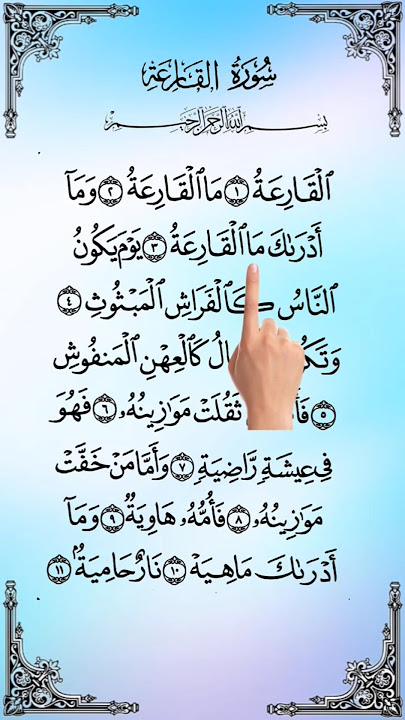 سُورَةُ ٱلْقَارِعَةِ
بِسْمِ ٱللَّهِ ٱلرَّحْمَٰنِ ٱلرَّحِيمِ
ٱلْقَارِعَةُ ١ مَا ٱلْقَارِعَةُ ٢ وَمَآ
أَدْرَىٰكَ مَا ٱلْقَارِعَةُ ٣ يَوْمَ يَكُونُ
ٱلنَّاسُ كَٱلْفَرَاشِ ٱلْمَبْثُوثِ ٤
كَٱلْعِهْنِ ٱلْمَنفُوشِ
٥ ثَقُلَتْ مَوَٰزِينُهُۥ ٦ فَهُوَ
فِى عِيشَةٍ رَّاضِيَةٍ ٧ وَأَمَّا مَنْ خَفَّتْ
مَوَٰزِينُهُۥ ٨ فَأُمُّهُۥ هَاوِيَةٌ ٩ وَمَآ
أَدْرَىٰكَ مَا هِيَهْ ١٠ نَارٌ حَامِيَةٌۢ ١١